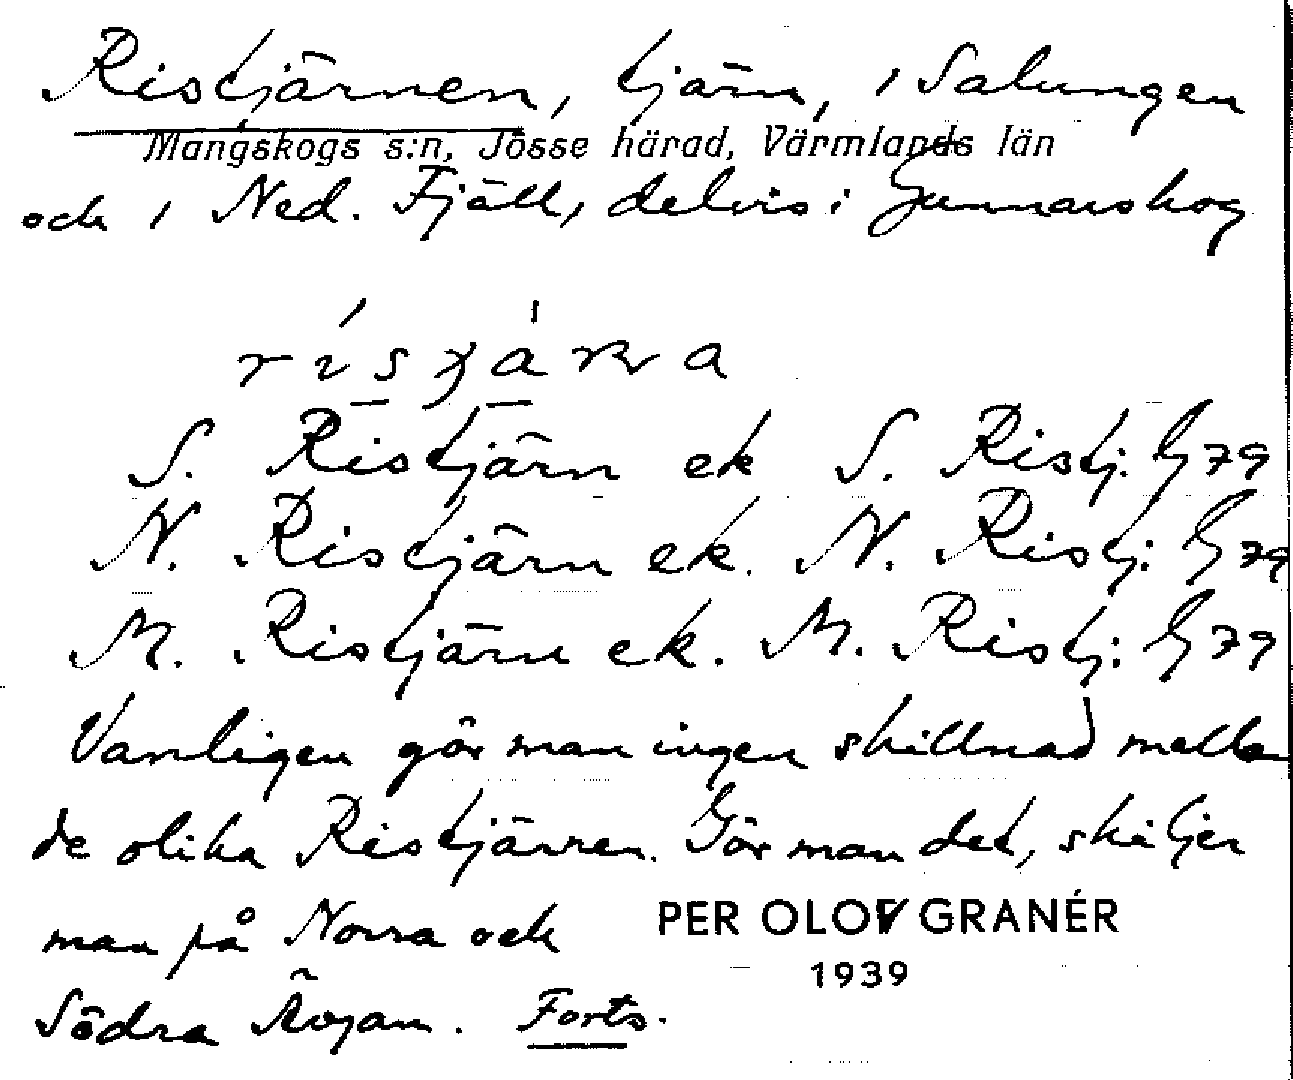 Ristjärnen, tjärn, i Salungen
Mangskogs s:n, Jösse härad, Värmlands län
och i Ned. Fjäll, delvis i Gunnarskog
S. Ristjärn ek S. Ristj. G 79
N. Ristjärn ek. N. Ristj. G 79
M. Ristjärn ek. M. Ristj: G 79
Vanligen gör man ingen skillnad mellan
de olika Ristjärnen. Gör man det, skiljer
man på Norra och
Södra
Forts.
PER OLOV GRANÉR
1939